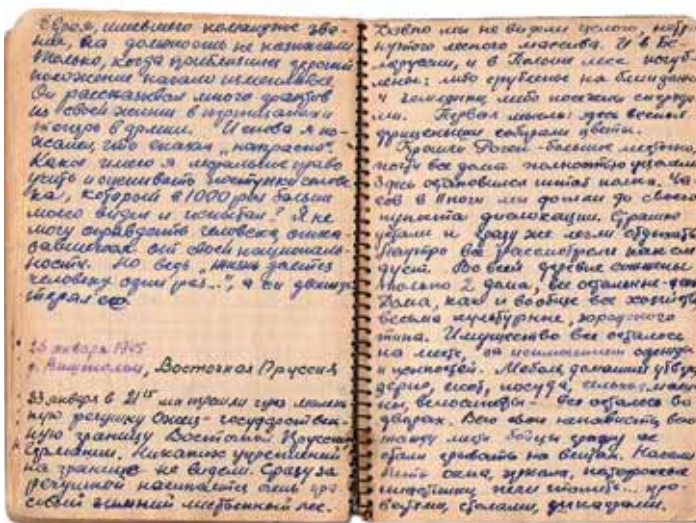 Еврея, имевшего командное зва-
ния, на должность не назначали
только, когда приблизили
положение начали изменяться.
Он рассказывал много фактов
из своей жизни в
теперь в армии. И снова я по-
жалел, что сказал „напрасно".
Какое имею я моральное право
учить и оценивать поступки челове-
ка, который в 1000 раз больше
моего видел и испытал? Я не
могу оправдать человека, отка-
завшегося от своей националь-
ности. Но ведь „жизнь дается
человеку один раз...", а он
терял ее
января 1945
Восточная Пруссия
23 января в 21¹⁵ мы прошли через малень-
кую речушку - государствен-
ную границу Восточной Пруссии
Германии. Никаких укреплений
на границе не видели. Сразу за
речушкой начинается очень кра-
сивый зимний лиственный лес.
Давно мы не видели целого, нетро-
нутого лесного массива. И в Бе-
лоруссии, и в Польше леса загуб-
лены: либо срублены на блиндажи
и либо посечены снаряда-
ми. Первая мысль: здесь весной
собирали цветы.
Прошли - большое местечко,
почти все дома полностью уцелели.
Здесь остановился штаб полка. Ча-
сов в ночи мы дошли до своего
пункта дислокации. Страшно
устали и сразу же легли отдыхать
Наутро все рассмотрели как сле-
дует. Во всей деревне сожжены
только 2 дома, все остальные
Дома, как и вообще все хозяйства
весьма культурные, городского
типа. Имущество все осталось
на месте, за исключением одежды
и ценностей. Мебель, домашняя утварь,
скот, посуда,
велосипеды - все осталось во
дворах. Всю свою ненависть
бойцы сразу же
стали срывать на вещах. Начали
бить окна, зеркала,
пластинки, печи топить... кро-
ватями, столами, диванами.